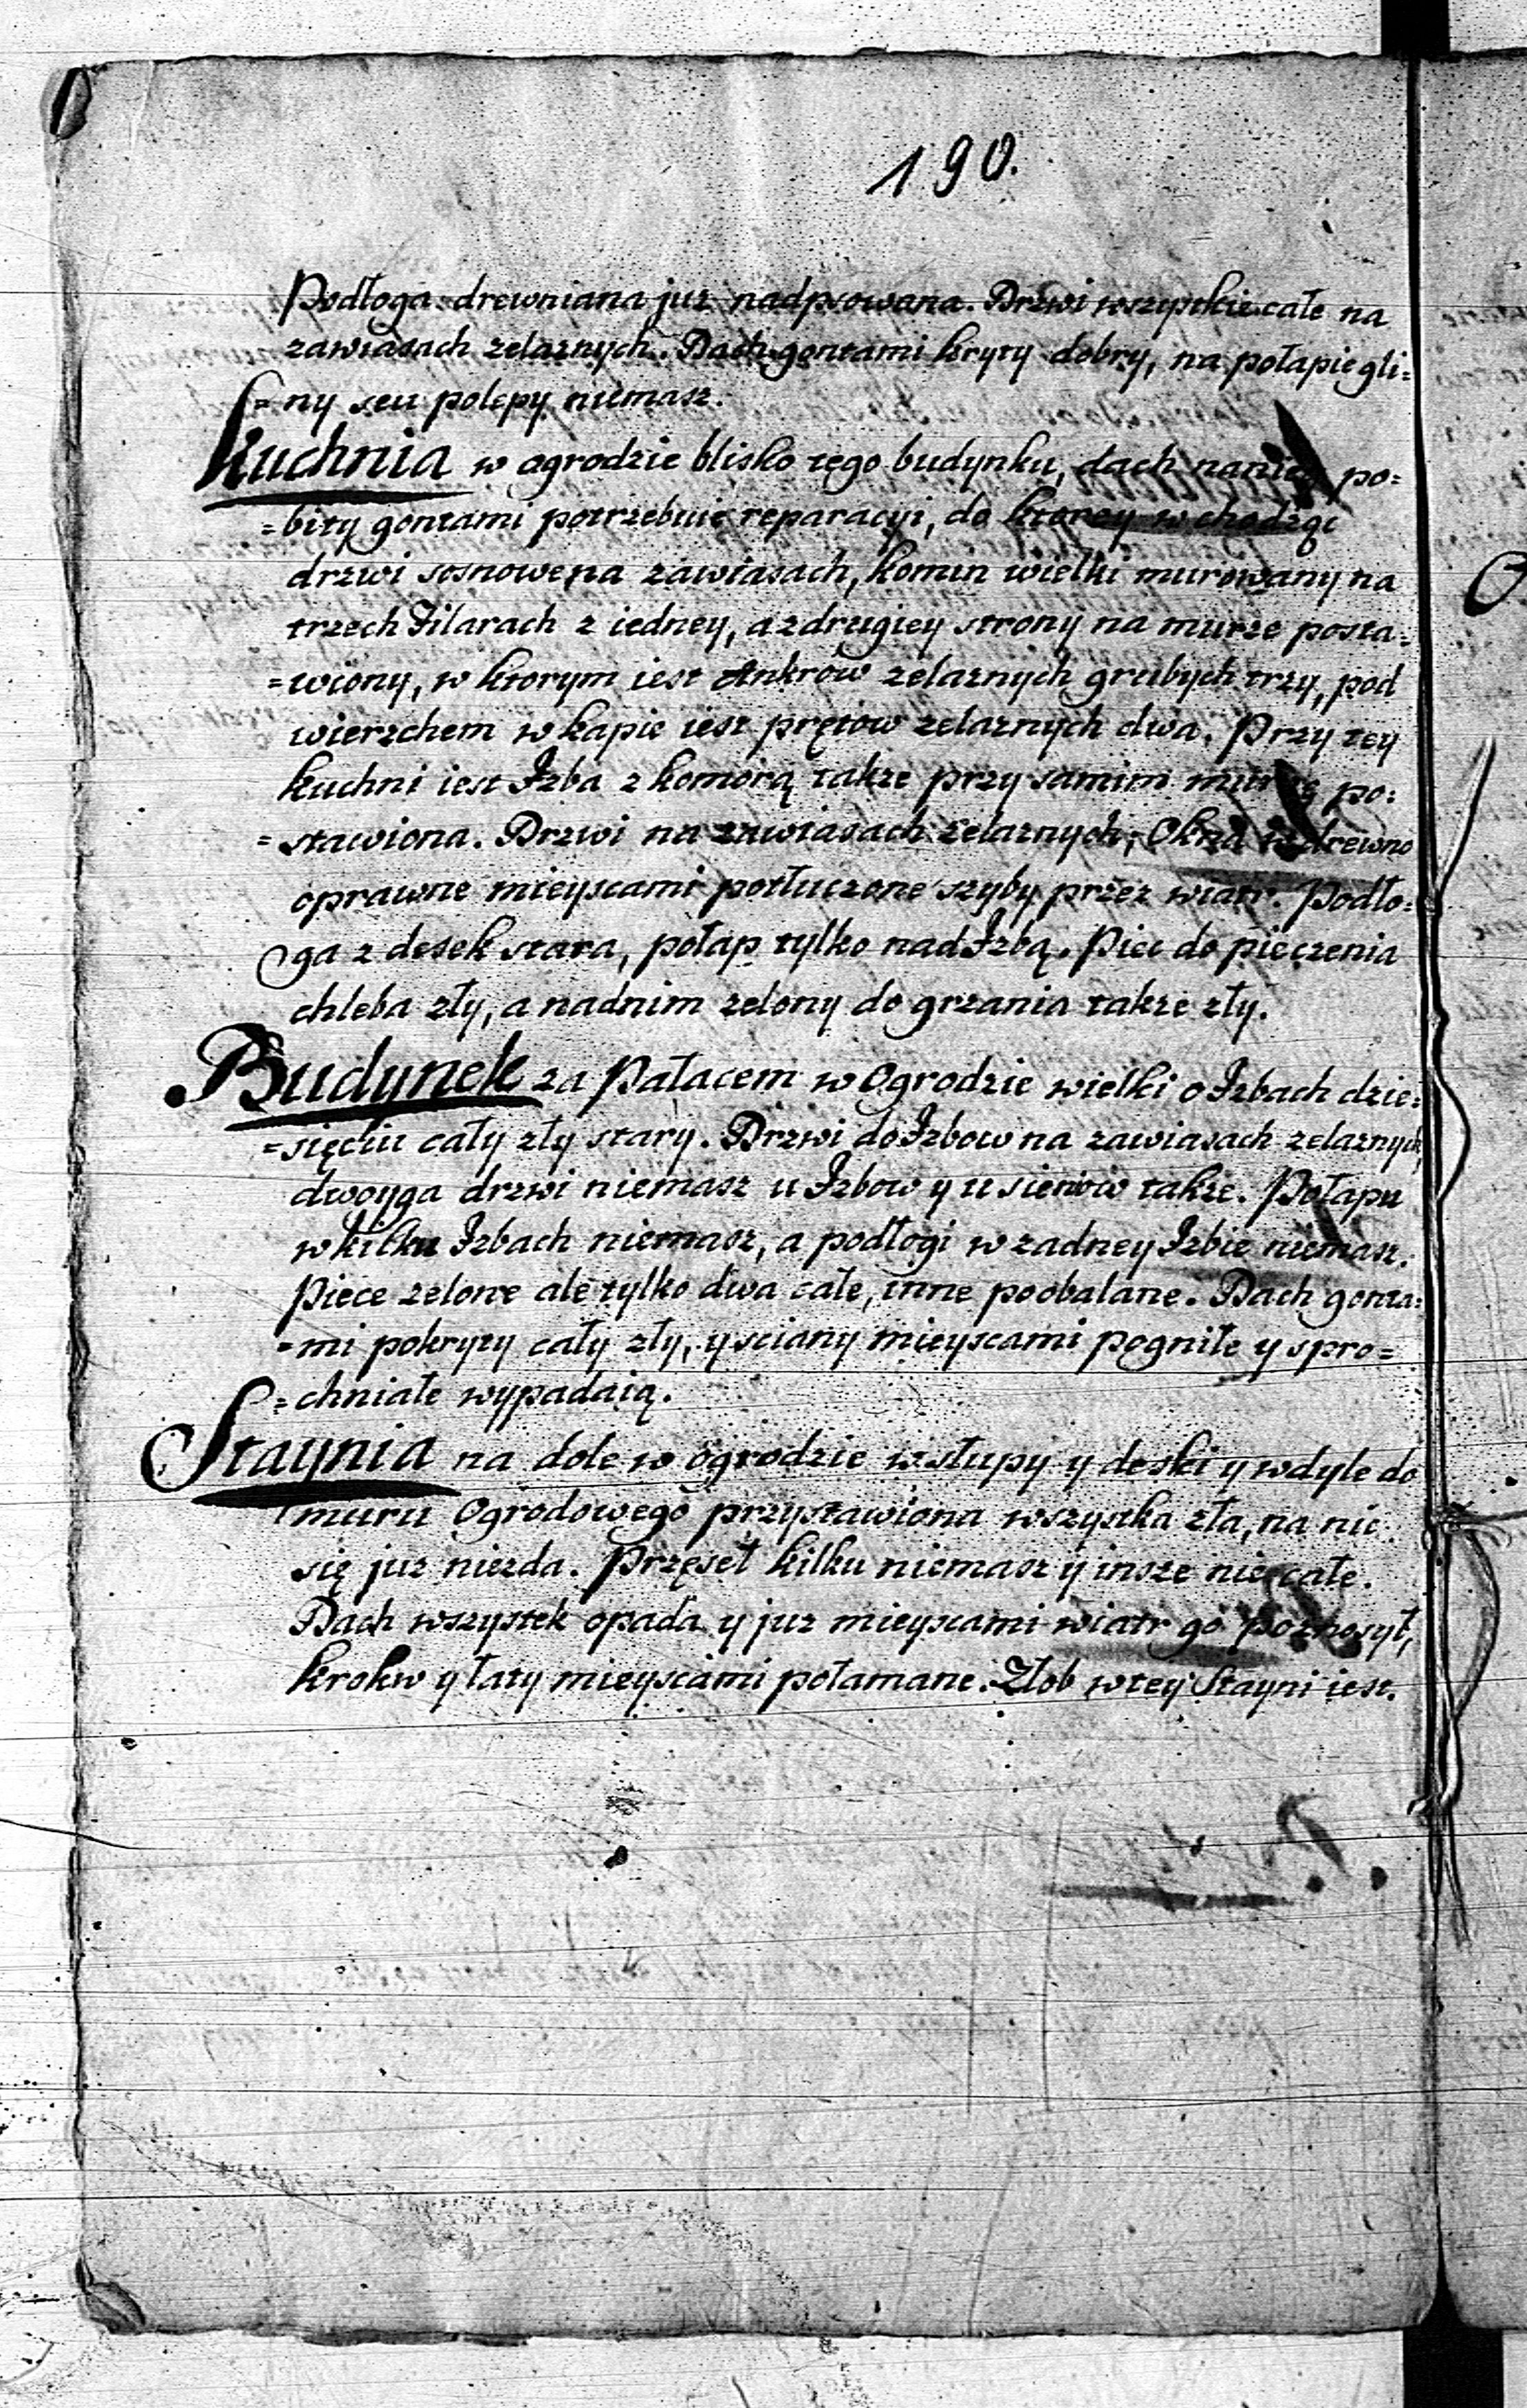 190.
Podłoga drewniana juz nadpsowana. Drzwi wszystkie całe na
zawiasach zelaznych. Dach gontami kryty dobry, na połapie gli=
=ny seu polepy niemasz.
Kuchnia w ogrodzie blisko tego budynku, dach naniey po=
=bity gontami potrzebuie reparacyi, do ktorey wchodząc
drzwi sosnowe na zawiasach, komin wielki murowany na
trzech Filarach z iedney, a zdrugiey strony na murze posta=
=wiony, w ktorym iest Ankrow zelaznych grubych trzy, pod
wierzchem w kapie iest prętow zelaznych dwa. Przy tey
kuchni iest Izba z komorą takze przy samim murze po=
=stawiona. Drzwi na zawiasach zelaznych, Okna w drewno
oprawne mieyscami potłuczone szyby przez wiatr. Podło=
ga z desek stara, połap tylko nad Izbą. Piec do pieczenia
chleba zły, a nadnim zelony do grzania takze zły.
Budynek za Pałacem w Ogrodzie wielki o Izbach dzie=
=sięciu cały zły stary. Drzwi do Izbow na zawiasach zelaznych,
dwoyga drzwi niemasz u Izbow y u sieniow takze. Połapu
w kilku Izbach niemasz, a podłogi w zadney Izbie niemasz.
Piece zelone ale tylko dwa całe, inne poobalane. Dach gonta=
=mi pokryty cały zły, y sciany mieyscami pogniłe y spro=
=chniałe wypadaią.
Staynia na dole w ogrodzie w słupy y deski y wdyle do
muru Ogrodowego przystawiona wszystka zła, na nic
się juz niezda. Przęseł kilku niemasz y insze nie całe.
Dach wszystek opada y juz mieyscami wiatr go poznosył,
krokw y łaty mieyscami połamane. Złob w tey Stayni iest.